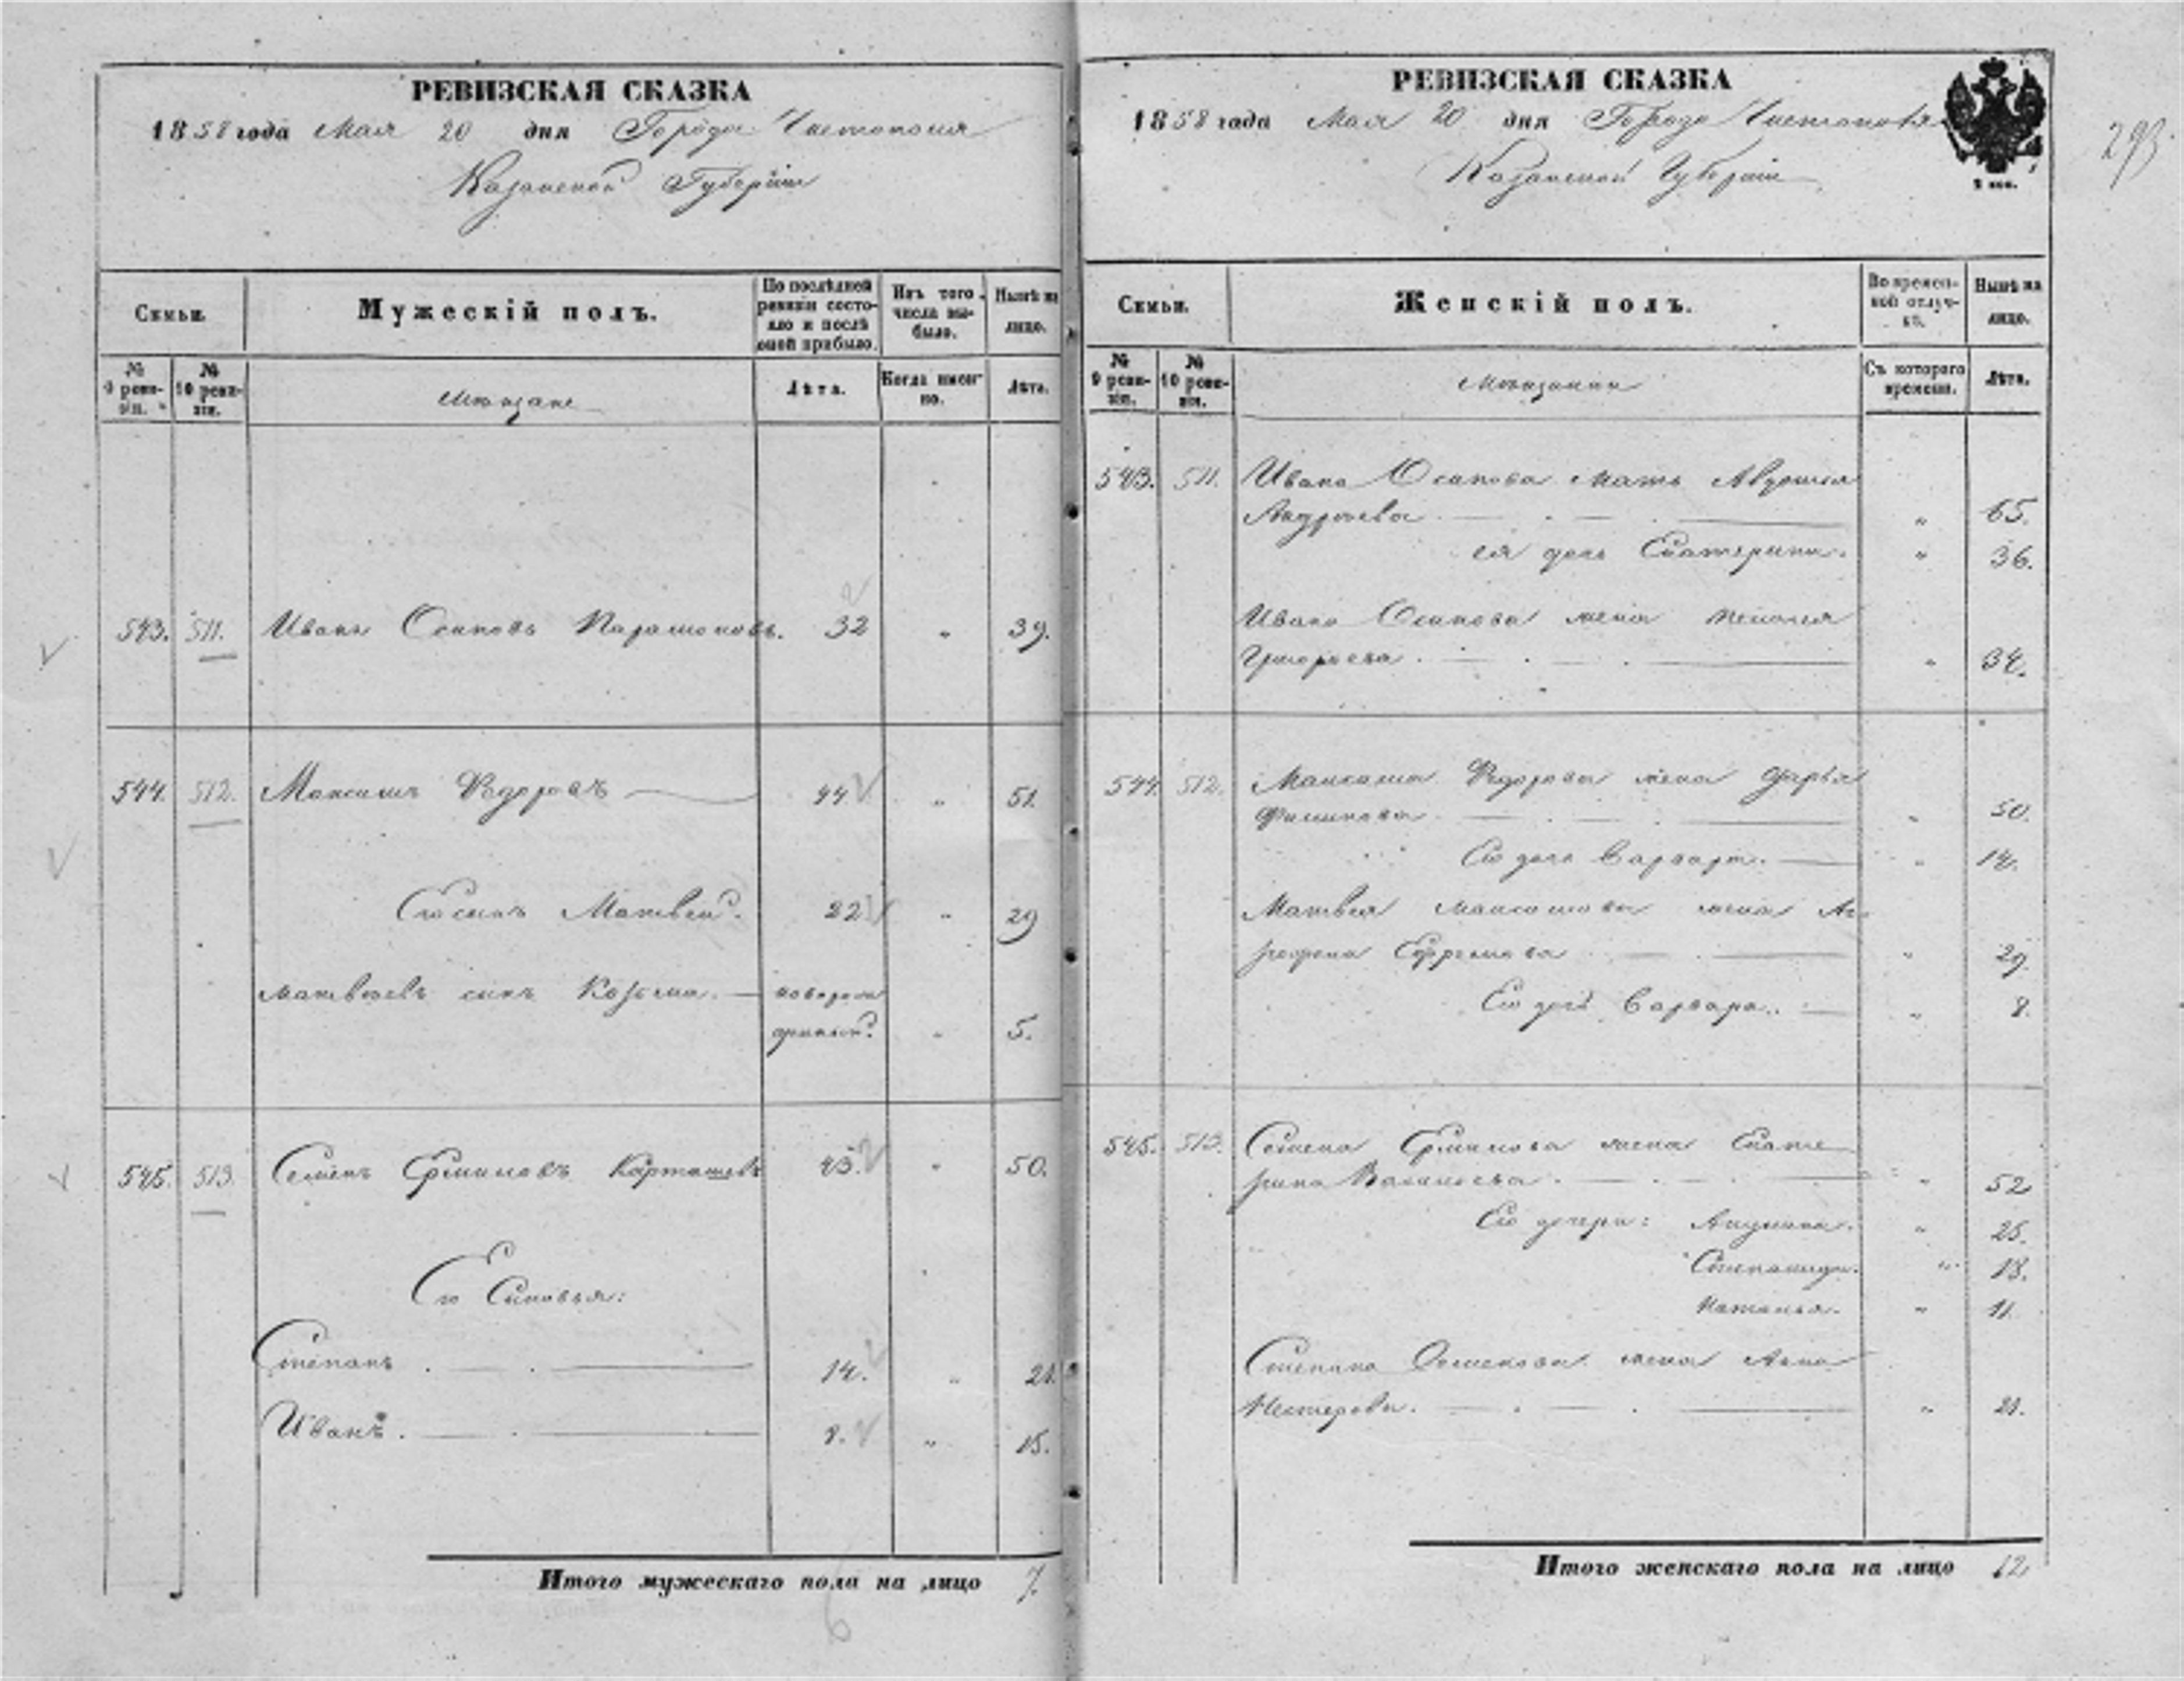 РЕВИЗСКАЯ СКАЗКА
1858 года Мая 20 дня Города Чистополя
Казанской Губернии
Семьи.
Мужескій полъ.
По послѣдней ревизіи состояло и послѣ оной прибыло.
Изъ того числа выбыло.
Нынѣ на лицо.
№ 9 ревизіи.
№ 10 ревизіи.
Мѣщане
Лѣта.
Когда именно.
Лѣта.
543. 511. Иванъ Осиповъ Парамоновъ. 32 " 39.
544. 512. Максимъ Ѳедоровъ 44 " 51.
Его сынъ Матвей. 22 " 29
Матвѣевъ сынъ Козьма. новорож
денный. " 5.
545. 513. Семенъ Ермиловъ Карташевъ 43. " 50.
Его Сыновья:
Степанъ . 14. " 21.
Иванъ. 8. " 15.
Итого мужескаго пола на лицо 7.
6
РЕВИЗСКАЯ СКАЗКА
1858 года Мая 20 дня Города Чистополя
Казанской Губерніи
293
Семьи.
Женскій полъ.
Во временной отлучкѣ.
Нынѣ на лицо.
№ 9 ревизіи.
№ 10 ревизіи.
Мѣщанки
Съ котораго времени.
Лѣта.
543. 511. Ивана Осипова мать Авдотья
Андреева " 65.
ея дочь Екатерина. " 36.
Ивана Осипова жена
Григорьева. " 34.
544. 512. Максима Ѳедорова жена Дарья
Филипова " 50.
Его дочь Варвара. " 14.
Матвея Максимова жена Аг
рафена Ефремова " 29.
Его дочь Варвара. " 8.
545. 513. Семена Ермилова жена Екате
рина Васильева. " 52
Его дочери: Акулина. " 25.
Степанида. " 18.
Наталья. " 11.
Степана Семенова жена Анна
Нестерова. " 21.
Итого женскаго пола на лицо 12